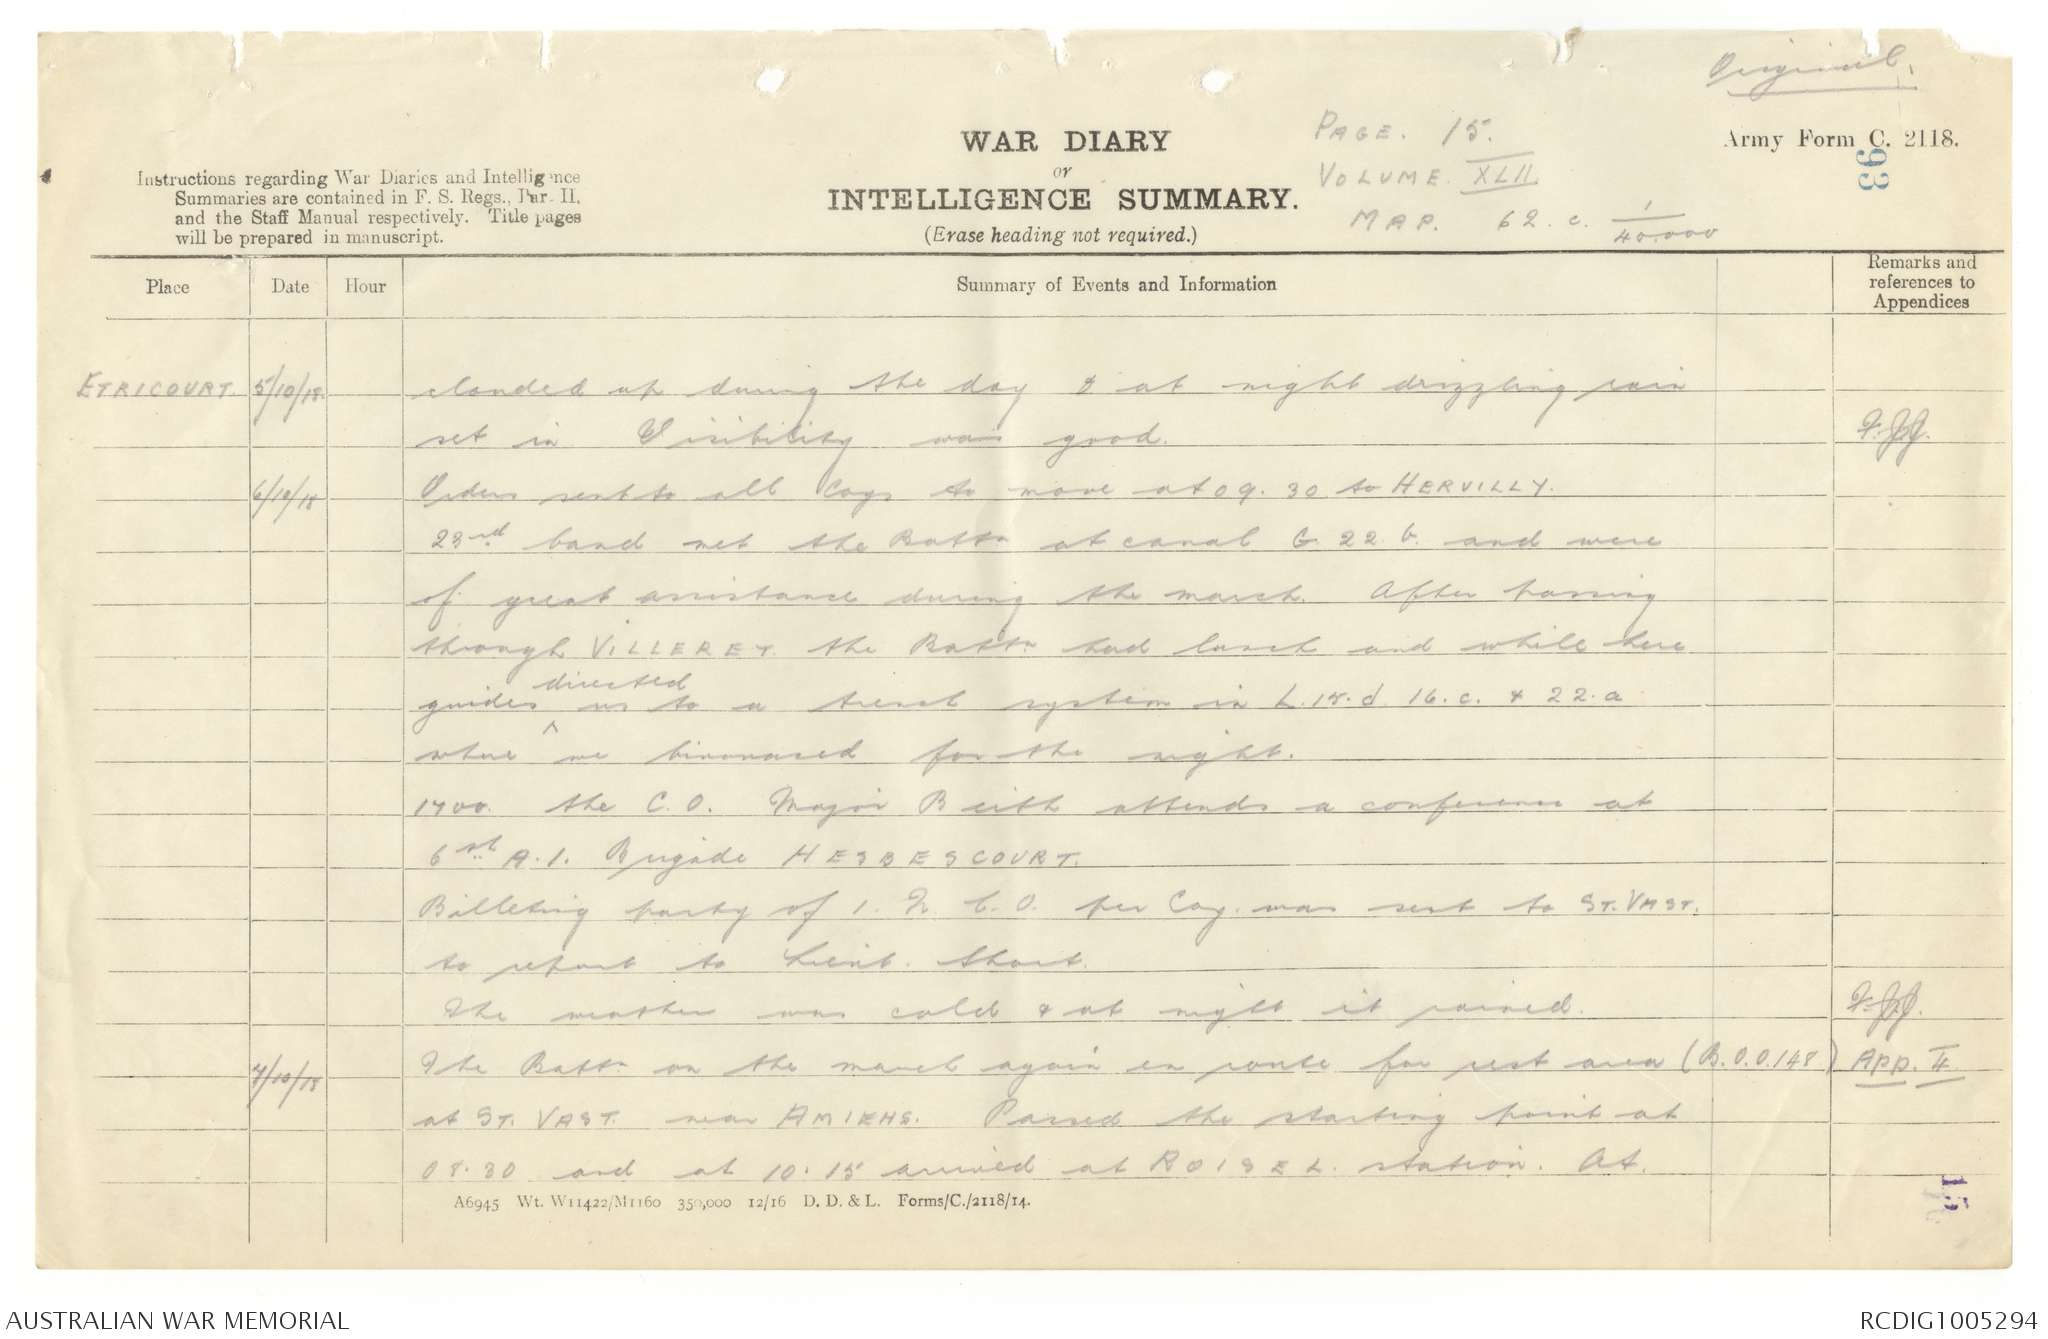 Original.
PAGE. 15.
WAR DIARY
Army Form C. 2118.
or
VOLUME. XLII.
INTELLIGENCE SUMMARY.
MAP. 62. c. 1/40.000
(Erase heading not required.)
93
Instructions regarding War Diaries and Intelligence
Summaries are contained in F. S. Regs., Part II.
and the Staff Manual respectively. Title pages
will be prepared in manuscript.
Place Date Hour Summary of Events and Information Remarks and references to Appendices
ETRICOURT. 5/10/18. clouded up during the day & at night drizzling rain
set in Visibility was good.
6/10/18 Orders sent to all Coys to move at 09.30 to HERVILLY.
23rd band met the Battn at canal G.22.b. and were
of great assistance during the march. After passing
through VILLERET. the Battn had lunch and while here
guides directed us to a trench system in L.15.d. 16.c. & 22.a
where we bivouaced for the night.
1700. the C.O. Major Beith attends a conference at
6th A.I. Brigade HESBESCOURT.
Billeting party of 1. N.C.O. per Coy. was sent to ST. VAST.
to report to Lieut. Short.
The weather was cold & at night it rained.
7/10/18 The Battn on the march again en route for rest area (B.O.O.148) App. II
at ST. VAST. near AMIENS. Passed the starting point at
08.30 and at 10.15 arrived at ROISEL. station. At.
A6945 Wt. W11422/M1160 350,000 12/16 D. D. & L. Forms/C./2118/14.
15
AUSTRALIAN WAR MEMORIAL
RCDIG1005294